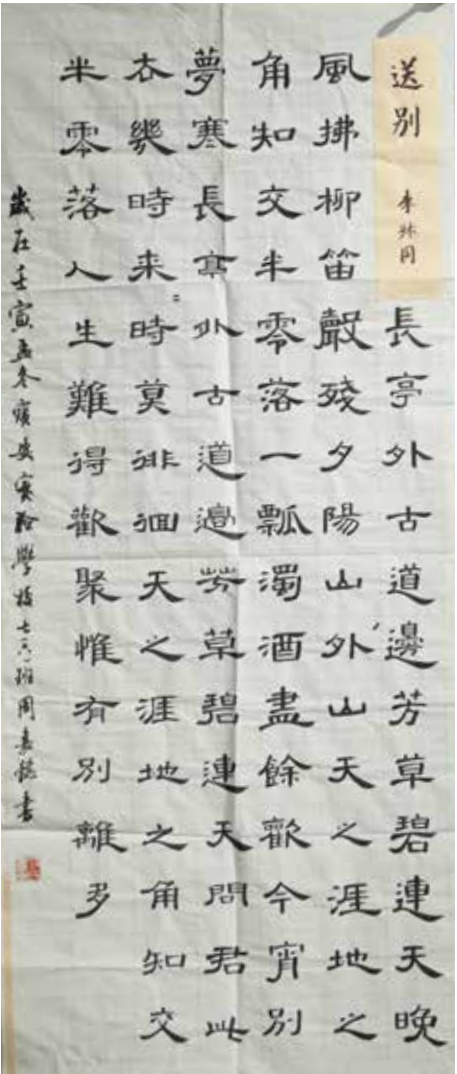 送別 李叔同
長亭外古道邊芳草碧連天晚
風拂柳笛聲殘夕陽山外山天之涯地之
角知交半零落一瓢濁酒盡餘歡今宵別
夢寒長亭外古道邊芳草碧連天問君此
去幾時来〻時莫徘徊天之涯地之角知交
半零落人生難得歡聚惟有別離多
歲在壬寅孟冬寶安實驗學校七六班周嘉懿書